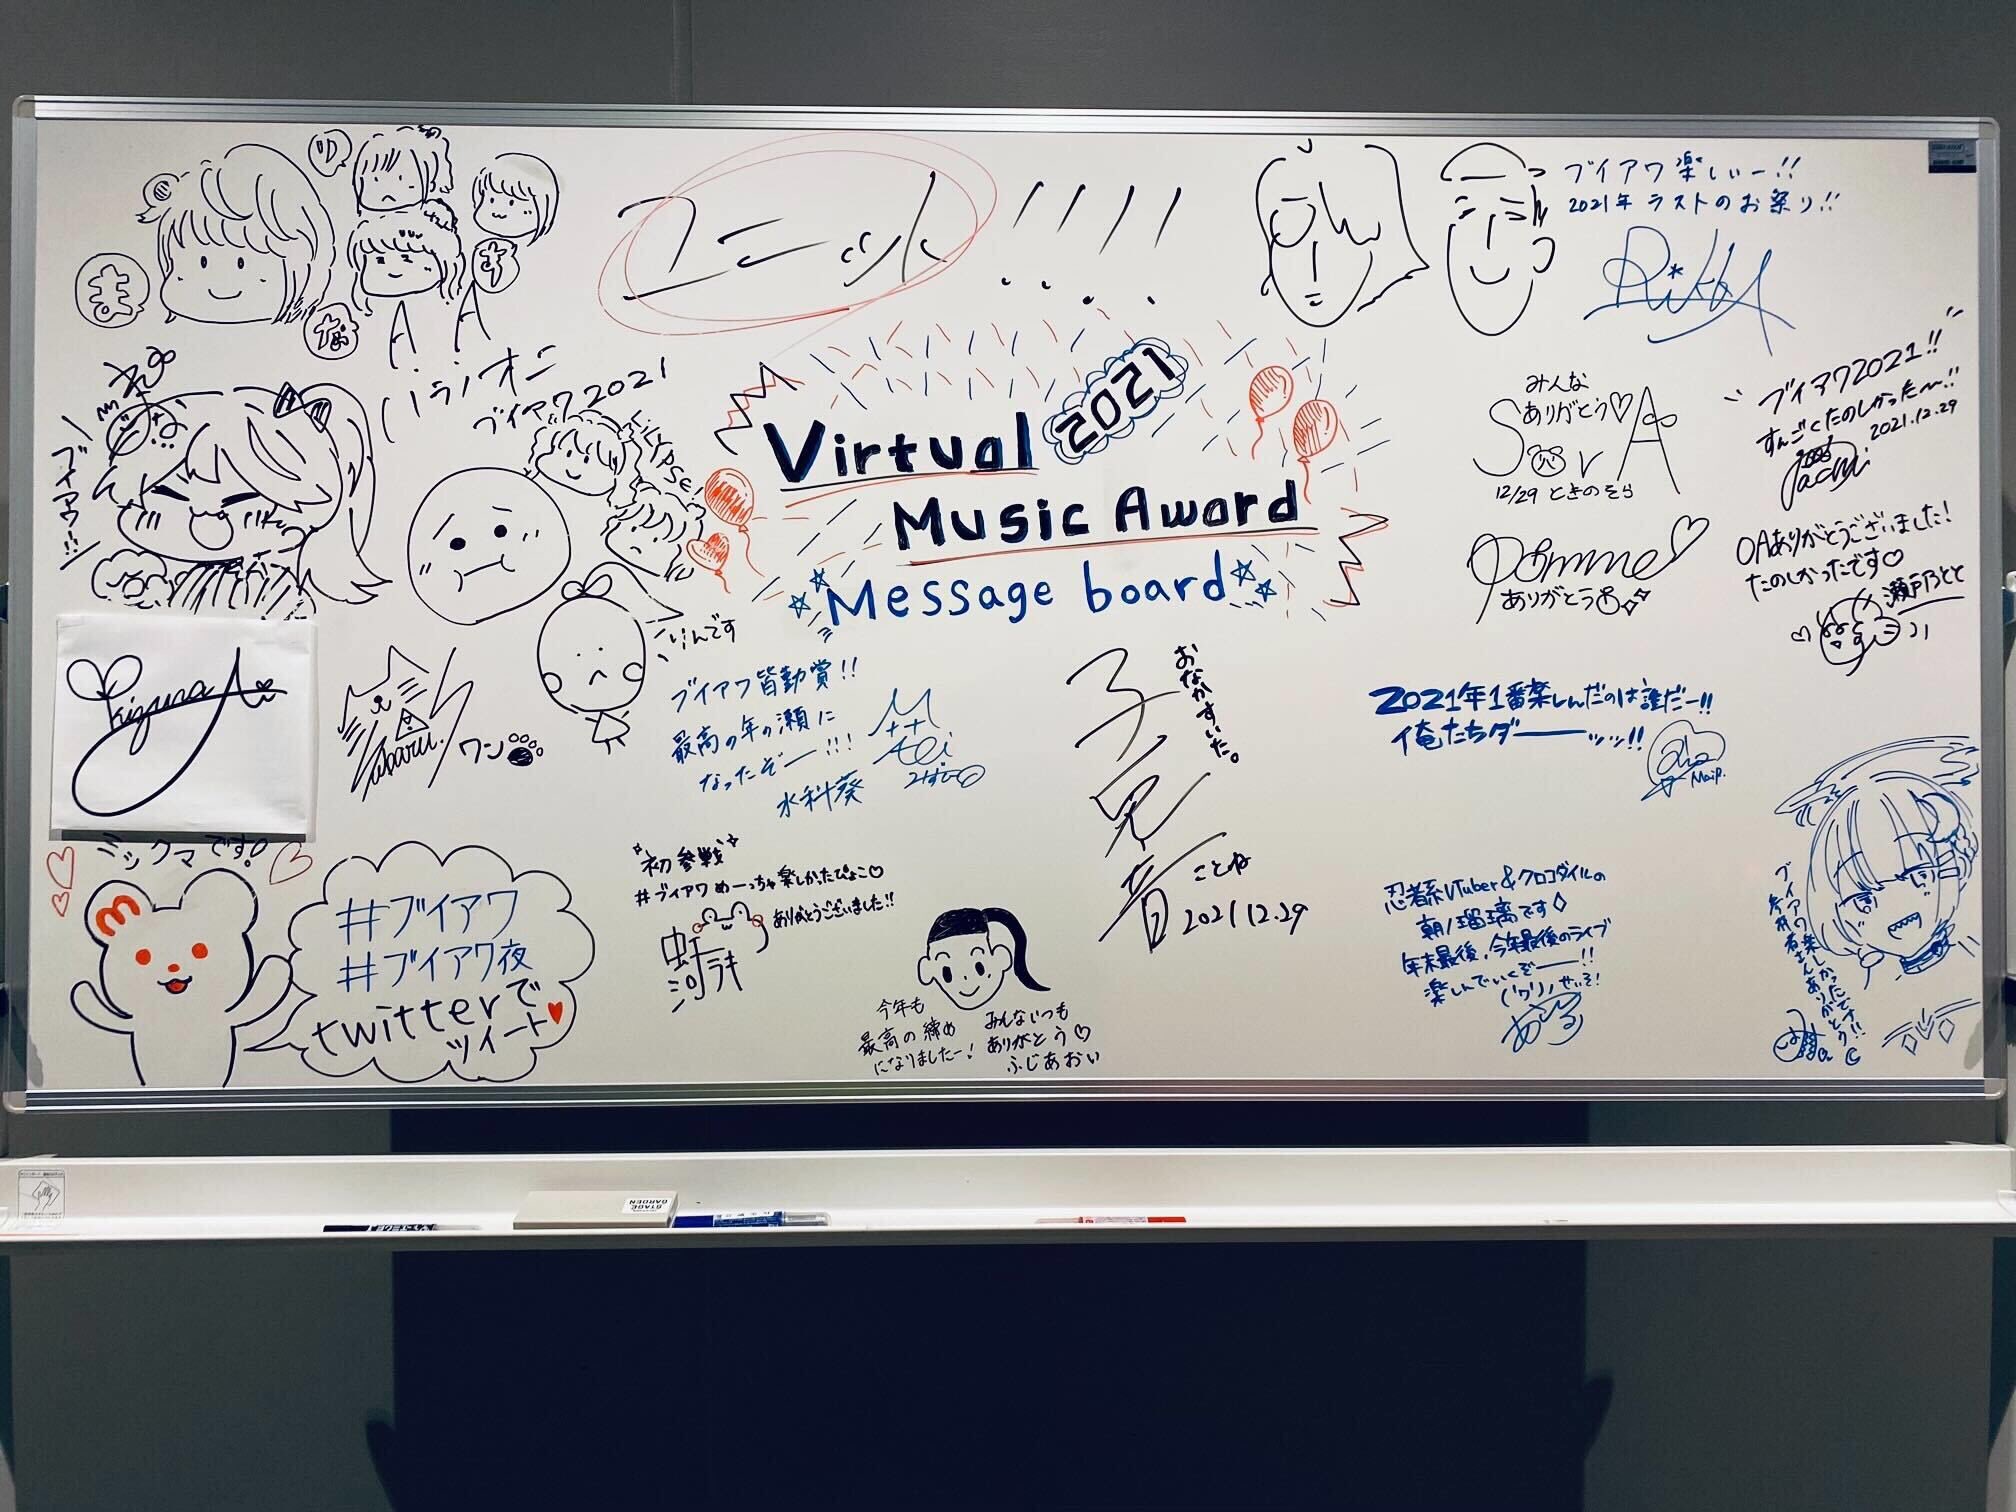 ま
ゆ
な
す
ユニット!!!!
ブイアワ楽しぃー!!
2021年 ラストのお祭り!!
Rikka
パラノオニ
ブイアワ2021
ブイアワ!!
2021
Virtual
Music Award
Message board
みんな
ありがとう♡
SorA
12/29 ときのそら
ブイアワ2021!!
すんごくたのしかった〜!!
2021.12.29
Pomme♡
ありがとう
OAありがとうございました!
たのしかったです♡
瀬戸乃とと
Kizuna Ai
Subaru.
ワン
いんです
ブイアワ皆勤賞!!
最高の年の瀬に
なったぞー!!!
水科葵
Aoi
おなかすいた。
子兎音
ことね
2021.12.29
2021年1番楽しんだのは誰だー!!
俺たちダーーッッ!!
Maip.
ミックマです!
m
#ブイアワ
#ブイアワ夜
twitterで
ツイート♥
初参戦
#ブイアワ めーっちゃ楽しかったぴょこ♡
ありがとうございました!!
虾河ラキ
今年も
最高の締め
になりましたー!
みんないつも
ありがとう♡
ふじあおい
忍者系VTuber&クロコダイルの
朝ノ瑠璃です◇
年末最後、今年最後のライブ
楽しんでいくぞー!!
ブイアワ楽しかったです!!
STAGE
GARDEN